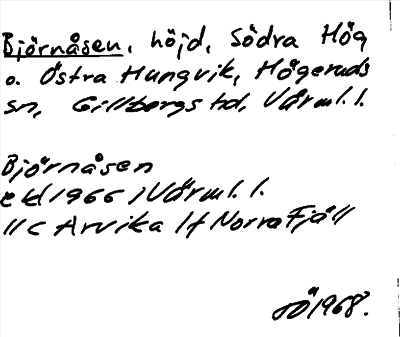 Björnåsen, höjd, Södra Hög
o. Östra Hungvik, Högeruds
sn, Gillbergs hd, Värml. l.
Björnåsen
ekl 1966 i Värml. l.
11 C Arvika 1 f Norra Fjäll
SÖ 1968.